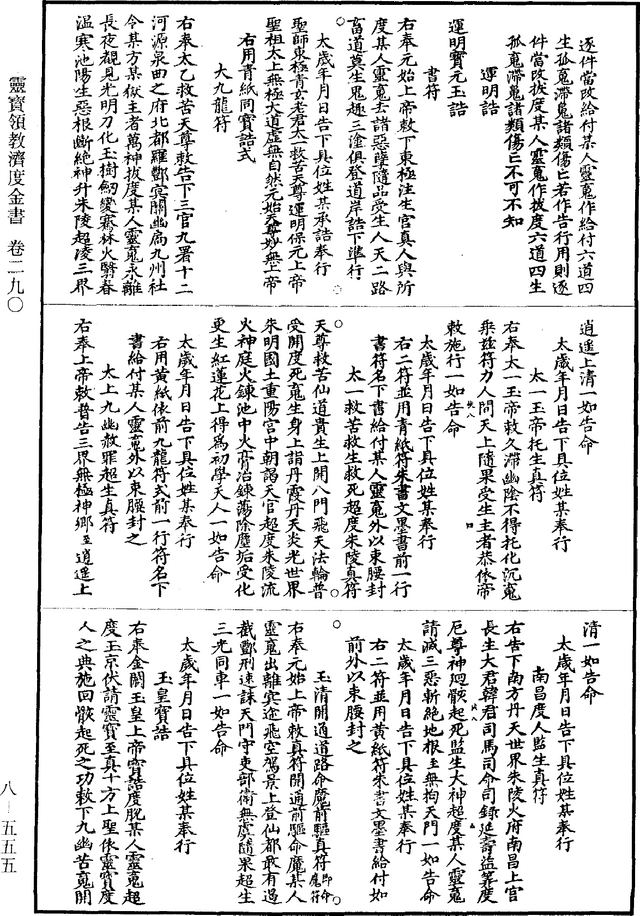 逐件當改給付某人靈䰟作給付六道四
生孤䰟滯䰟諸類傷亡若作告行用則逐
件當改拔度某人靈䰟作拔度六道四生
孤䰟滯䰟諸類傷亡不可不知
運明誥
運明寶元玉誥
書符
右奉元始上帝敕下東極注生官真人與所
度某人靈䰟去諸惡孽隨品受生人天二路
畜道莫生鬼趣三塗俱登道岸誥下準行
太歲年月日告下具位姓某承誥奉行
聖師東極青玄老君太一救苦天尊運明保元上帝
聖祖太上無極大道虛無自然元始天尊妙無上帝
右用青紙同寶誥式
大九龍符
右奉太乙救苦天尊敕告下三官九署十二
河源泉曲之府北都羅酆㝠關幽扃九州社
令某方某獄主者萬神拔度某人靈䰟永離
長夜覩見光明刀化玉樹劒變騫林火翳春
温寒池陽生惡根斷絶神升朱陵超凌三界
逍遥上清一如告命
太歲年月日告下具位姓某奉行
太一玉帝托生真符
右奉太一玉帝敕久滯幽陰不得托化沉䰟
乗兹符力人間天上隨果受生主者恭依帝
敕施行一如告命
太歲年月日告下具位姓某奉行
右二符並用青紙符朱書文墨書前一行
書符名下書給付某人靈䰟外以束腰封
太一救苦救生救死超度朱陵真符
天尊救苦仙道貴生上開八門飛天法輪普
受開度死䰟生身上詣丹霞丹天炎光世界
來明國土重陽宫中朝謁天官超度朱陵流
火神庭火鍊池中火膏冶鍊蕩除塵垢受化
更生紅蓮花上得為初學天人一如告命
太歲年月日告下具位姓某奉行
右用黄紙依前九龍符式前一行符名下
書給付某人靈䰟外以束腰封之
太上九幽赦罪超生真符
右奉上帝敕普告三界無極神鄉至逍遥上
清一如告命
太歲年月日告下具位姓某奉行
南昌度人監生真符
右告下南方丹天世界朱陵火府南昌上宫
長生大君韓君司馬司命司錄延壽益筭度
厄尊神廻骸起死監生大神超度某人靈䰟
請滅三惡斬絶地根主無拘天門一如告命
太歲年月日告下具位姓某奉行
右二符並用黄紙符朱書文墨書給付如
前外以束腰封之
玉清開通道路命魔前驅真符即命魔符
右奉元始上帝敕真符開通前驅命魔某人
靈䰟出離㝠途飛空駕景上登仙都敢有過
截酆刑速誅天門守吏部衛無虞隨果超生
三光同車一如告命
太歲年月日告下具位姓某奉行
玉皇寶誥
右奉金闕玉皇上帝寶誥度脱某人靈䰟超
度玉京伏請靈寶至真十方上聖依靈寶度
人之典施回骸起死之功敕下九幽苦䰟開
靈寶領教濟度金書　卷二九〇
八—五五五